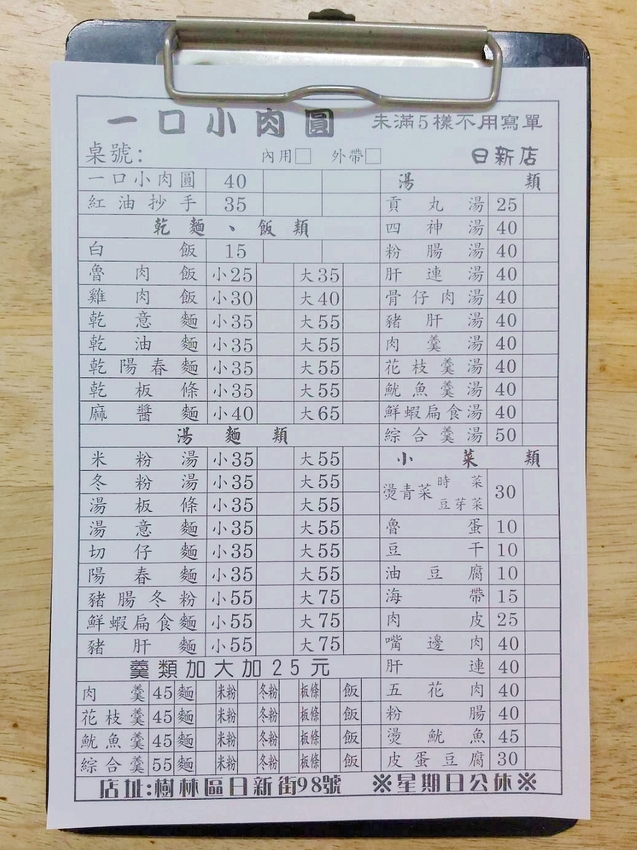 一口小肉圓 未滿5樣不用寫單
桌號: 內用□ 外帶□ 日新店
一口小肉圓 40
紅油抄手 35
乾麵、飯類
白飯 15
魯肉飯 小25 大35
雞肉飯 小30 大40
乾意麵 小35 大55
乾油麵 小35 大55
乾陽春麵 小35 大55
乾板條 小35 大55
麻醬麵 小40 大65
湯麵類
米粉湯 小35 大55
冬粉湯 小35 大55
湯板條 小35 大55
湯意麵 小35 大55
切仔麵 小35 大55
陽春麵 小35 大55
豬腸冬粉 小55 大75
鮮蝦扁食麵 小55 大75
豬肝麵 小55 大75
羹類加大加25元
肉羹 45 麵 米粉 冬粉 板條 飯
花枝羹 45 麵 米粉 冬粉 板條 飯
魷魚羹 45 麵 米粉 冬粉 板條 飯
綜合羹 55 麵 米粉 冬粉 板條 飯
湯類
貢丸湯 25
四神湯 40
粉腸湯 40
肝連湯 40
骨仔肉湯 40
豬肝湯 40
肉羹湯 40
花枝羹湯 40
魷魚羹湯 40
鮮蝦扁食湯 40
綜合羹湯 50
小菜類
燙青菜 時菜 豆芽菜 30
魯蛋 10
豆干 10
油豆腐 10
海帶 15
肉皮 25
嘴邊肉 40
肝連 40
五花肉 40
粉腸 40
燙魷魚 45
皮蛋豆腐 30
店址:樹林區日新街98號 ※星期日公休※